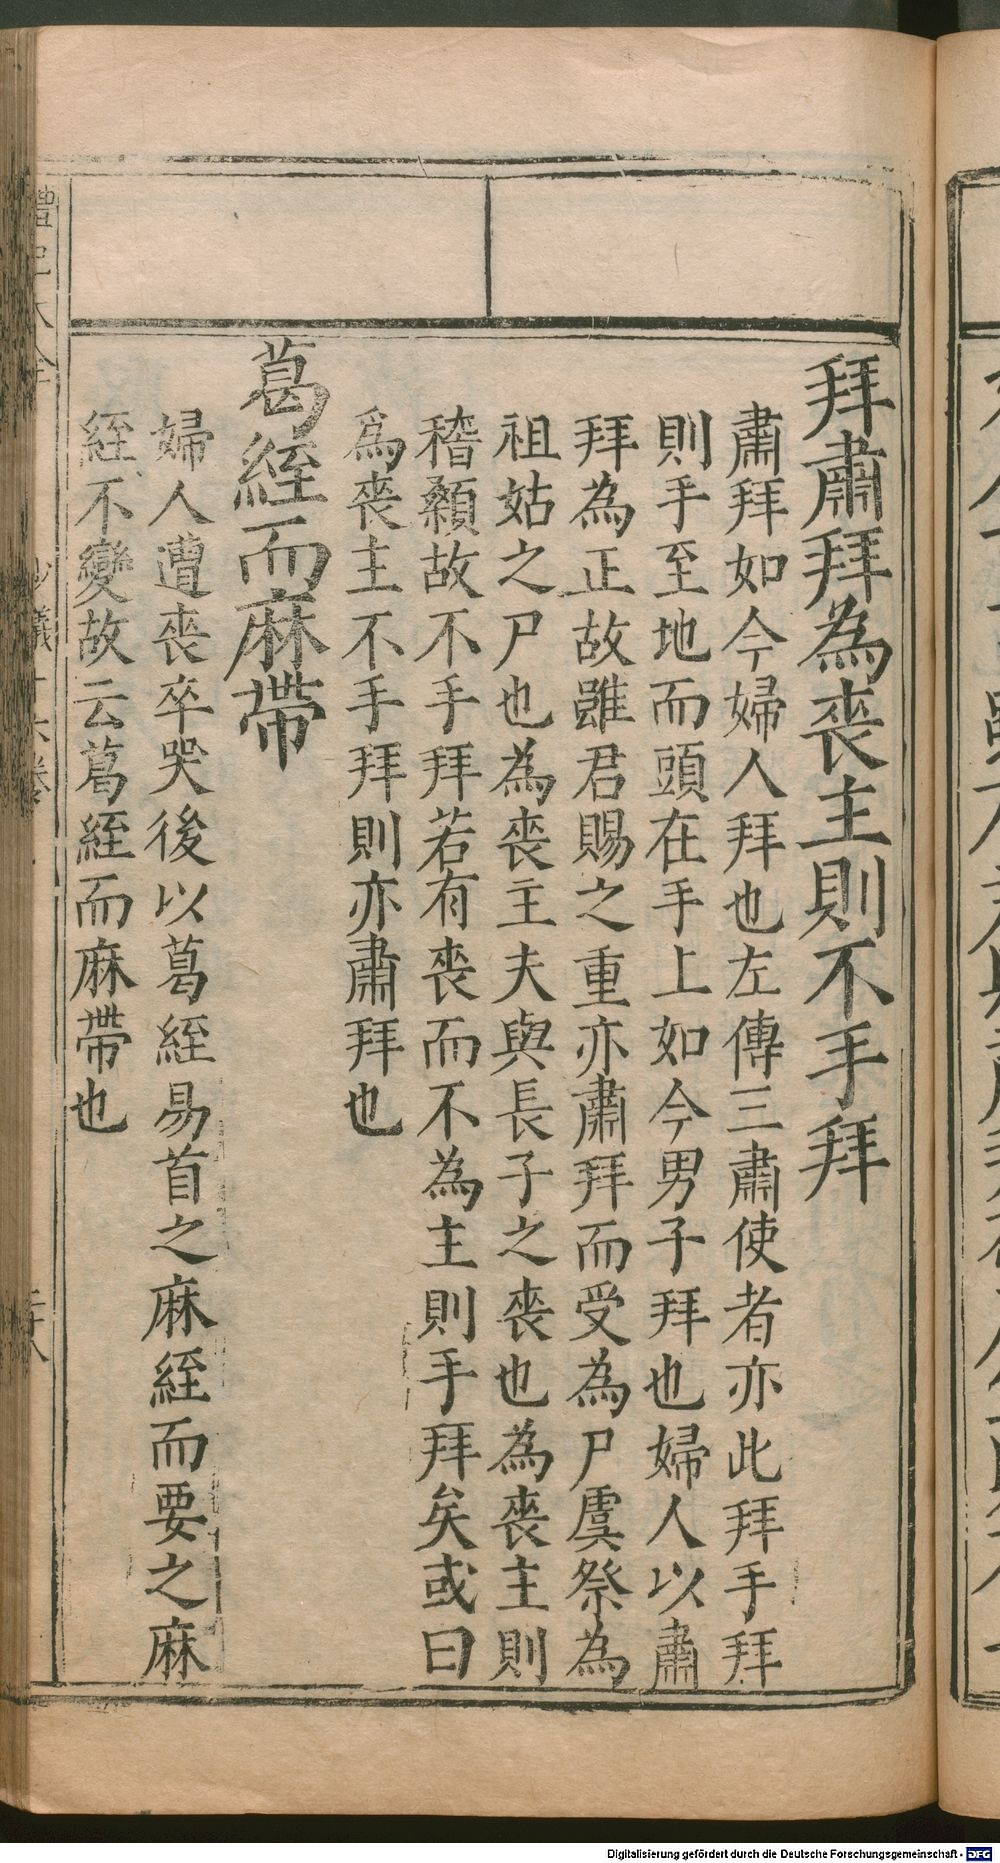 拜肅拜為喪主則不手拜
肅拜如今婦人拜也左傳三肅使者亦此拜手拜
則手至地而頭在手上如今男子拜也婦人以肅
拜為正故雖君賜之重亦肅拜而受為尸虞祭為
祖姑之尸也為喪主夫與長子之喪也為喪主則
稽顙故不手拜若有喪而不為主則手拜矣或曰
為喪主不手拜則亦肅拜也
葛絰而麻帶
婦人遭喪卒哭後以葛絰易首之麻絰而要之麻
絰不變故云葛絰而麻帶也
Digitalisierung gefördert durch die Deutsche Forschungsgemeinschaft - DFG